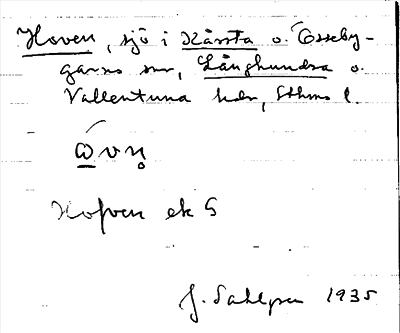 Hoven, sjö i Kårsta o. Össeby-
garns snr, Långhundra o.
Vallentuna hdr, Sthms l.
Hofven ek 5
J. Sahlgren 1935